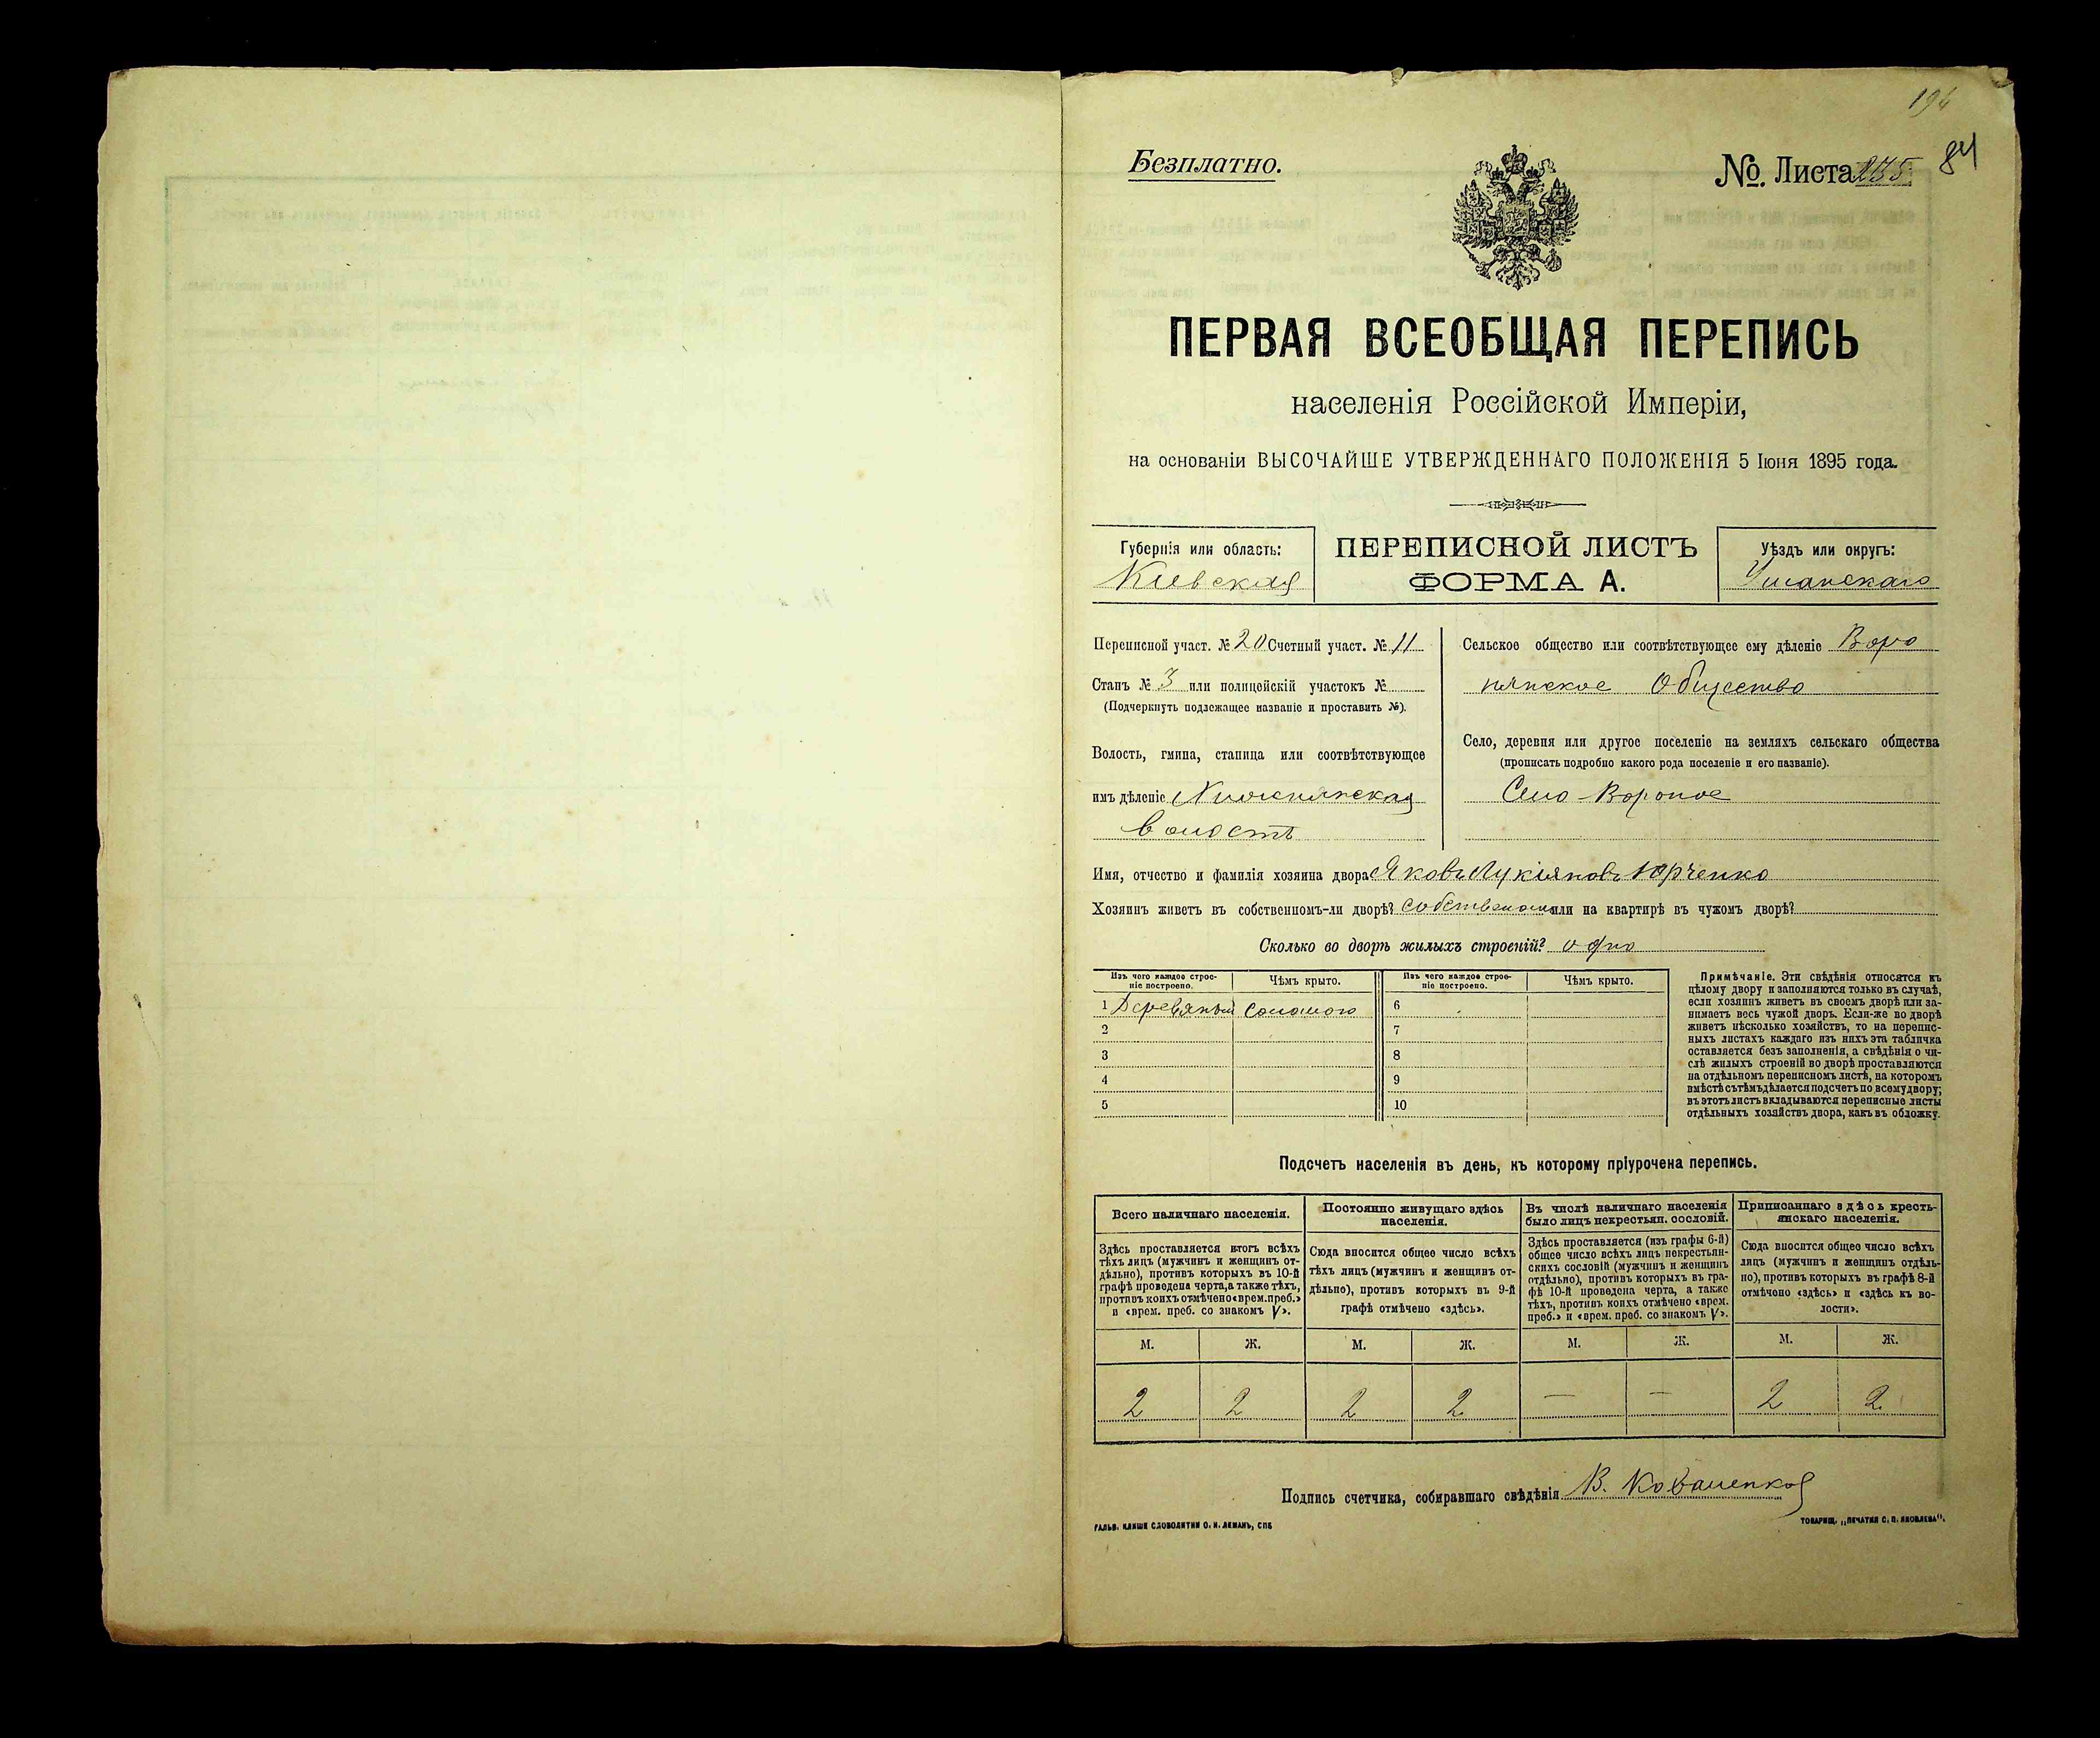 194
84
Безплатно.
№. Листа 235
ПЕРВАЯ ВСЕОБЩАЯ ПЕРЕПИСЬ
населенія Россійской Имперіи,
на основаніи ВЫСОЧАЙШЕ УТВЕРЖДЕННАГО ПОЛОЖЕНІЯ 5 Іюня 1895 года.
Губернія или область:
Кіевская
ПЕРЕПИСНОЙ ЛИСТЪ
ФОРМА А.
Уѣздъ или округъ:
Уманскаго
Переписной участ. № 20 Счетный участ. № 11
Станъ № 3 или полицейскій участокъ №
(Подчеркнуть подлежащее названіе и проставить №).
Волость, гмина, станица или соотвѣтствующее
имъ дѣленіе
волость
Сельское общество или соотвѣтствующее ему дѣленіе Воро
нянское Общество
Село, деревня или другое поселеніе на земляхъ сельскаго общества
(прописать подробно какого рода поселеніе и его названіе).
Село Вороное
Имя, отчество и фамилія хозяина двора Яковъ Лукіяновъ Юрченко
Хозяинъ живетъ въ собственномъ-ли дворѣ? собственомъ или на квартирѣ въ чужомъ дворѣ?
Сколько во дворѣ жилыхъ строеній? одно
Изъ чего каждое строе-
ніе построено.
Чѣмъ крыто.
1 Деревяный соломою
2
3
4
5
Изъ чего каждое строе-
ніе построено.
Чѣмъ крыто.
6
7
8
9
10
Примѣчаніе. Эти свѣдѣнія относятся къ
цѣлому двору и заполняются только въ случаѣ,
если хозяинъ живетъ въ своемъ дворѣ или за-
нимаетъ весь чужой дворъ. Если-же во дворѣ
живетъ нѣсколько хозяйствъ, то на перепис-
ныхъ листахъ каждаго изъ нихъ эта табличка
оставляется безъ заполненія, а свѣдѣнія о чи-
слѣ жилыхъ строеній во дворѣ проставляются
на отдѣльномъ переписномъ листѣ, на которомъ
вмѣстѣ съ тѣмъ дѣлается подсчетъ по всему двору;
въ этотъ листъ вкладываются переписные листы
отдѣльныхъ хозяйствъ двора, какъ въ обложку.
Подсчетъ населенія въ день, къ которому пріурочена перепись.
Всего наличнаго населенія.
Здѣсь проставляется итогъ всѣхъ
тѣхъ лицъ (мужчинъ и женщинъ от-
дѣльно), противъ которыхъ въ 10-й
графѣ проведена черта, а также тѣхъ,
противъ коихъ отмѣчено «врем. преб.»
и «врем. преб. со знакомъ V».
Постоянно живущаго здѣсь
населенія.
Сюда вносится общее число всѣхъ
тѣхъ лицъ (мужчинъ и женщинъ от-
дѣльно), противъ которыхъ въ 9-й
графѣ отмѣчено «здѣсь».
Въ числѣ наличнаго населенія
было лицъ некрестьян. сословій.
Здѣсь проставляется (изъ графы 6-й)
общее число всѣхъ лицъ некрестьян-
скихъ сословій (мужчинъ и женщинъ
отдѣльно), противъ которыхъ въ гра-
фѣ 10-й проведена черта, а также
тѣхъ, противъ коихъ отмѣчено «врем.
преб.» и «врем. преб. со знакомъ V».
Приписаннаго здѣсь кресть-
янскаго населенія.
Сюда вносится общее число всѣхъ
лицъ (мужчинъ и женщинъ отдѣль-
но), противъ которыхъ въ графѣ 8-й
отмѣчено «здѣсь» и «здѣсь къ во-
лости».
М. Ж. М. Ж. М. Ж. М. Ж.
2 2 2 2 — — 2 2
Подпись счетчика, собиравшаго свѣдѣнія В.
ГАЛЬВ. КЛИШЕ СЛОВОЛИТНИ О. И. ЛЕМАНЪ, СПБ
ТОВАРИЩ. „ПЕЧАТНЯ С. П. ЯКОВЛЕВА“.